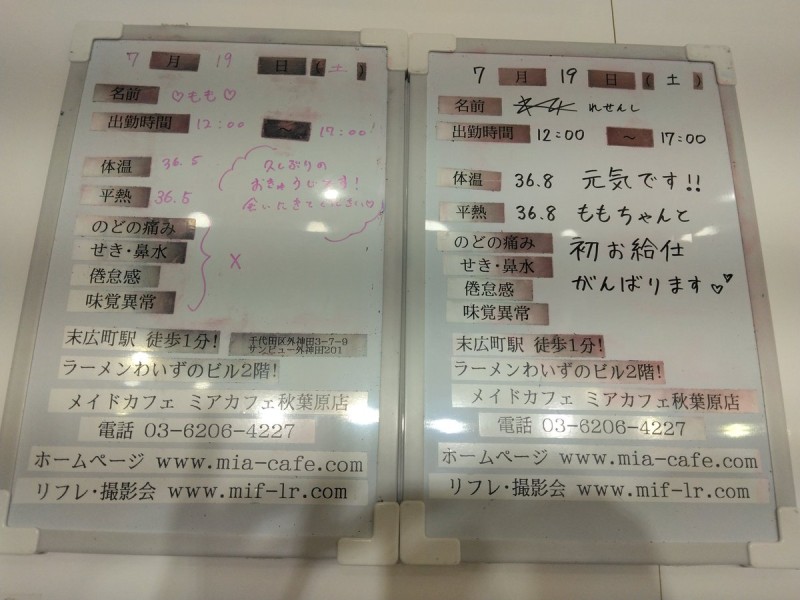 7 月 19 日 (土)
名前 ♡もも♡
出勤時間 12:00 ~ 17:00
体温 36.5
平熱 36.5
久しぶりの
おきゅうじです!
会いにきてください♡!
のどの痛み
せき・鼻水
倦怠感
味覚異常
×
末広町駅 徒歩1分!
千代田区外神田3-7-9
サンビュー外神田201
ラーメンわいずのビル2階!
メイドカフェ ミアカフェ秋葉原店
電話 03-6206-4227
ホームページ www.mia-cafe.com
リフレ・撮影会 www.mif-lr.com
7 月 19 日 (土)
名前 れせんし
出勤時間 12:00 ~ 17:00
体温 36.8
平熱 36.8
元気です!!
ももちゃんと
初お給仕
がんばります♡♡
のどの痛み
せき・鼻水
倦怠感
味覚異常
末広町駅 徒歩1分!
ラーメンわいずのビル2階!
メイドカフェ ミアカフェ秋葉原店
電話 03-6206-4227
ホームページ www.mia-cafe.com
リフレ・撮影会 www.mif-lr.com